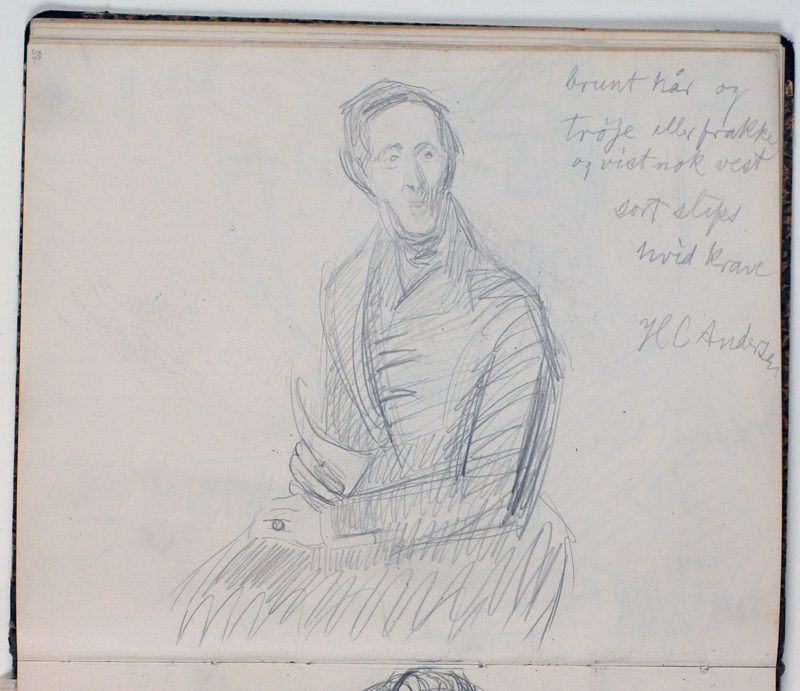 brunt hår og
trøje eller frakke
og vistnok vest
sort slips
hvid krave
H C Andersen